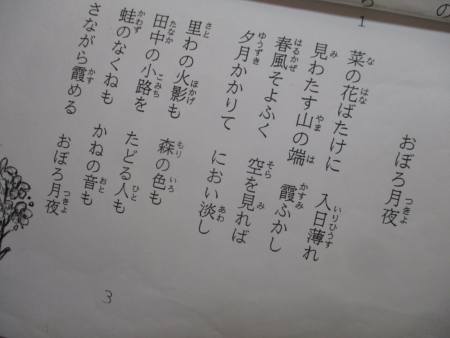 おぼろ月夜
1
菜の花ばたけに 入日薄れ
見わたす山の端 霞ふかし
春風そよふく 空を見れば
夕月かかりて におい淡し
里わの火影も 森の色も
田中の小路を たどる人も
蛙のなくねも かねの音も
さながら霞める おぼろ月夜
3